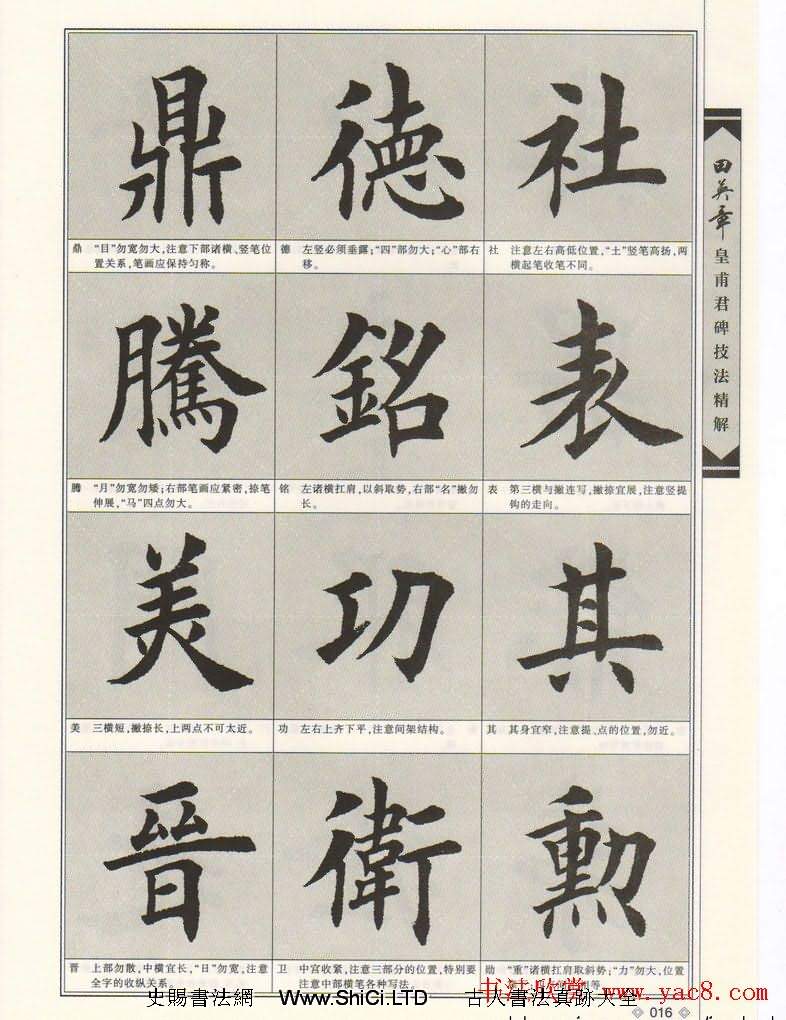 田英章
皇甫君碑技法精解
社
社 注意左右高低位置,“土”竖笔高扬,两
横起笔收笔不同。
表
表 第三横与撇连写,撇捺宜展,注意竖提
钩的走向。
其
其 其身宜窄,注意提、点的位置,勿近。
勳
勋 “重”诸横扛肩取斜势;“力”勿大,位置
徳
德 左竖必须垂露;“四”部勿大;“心”部右
移。
銘
铭 左诸横扛肩,以斜取势,右部“名”撇勿
长。
功
功 左右上齐下平,注意间架结构。
衛
卫 中宫收紧,注意三部分的位置,特别要
注意中部横笔各种写法。
鼎
鼎 “目”勿宽勿大,注意下部诸横、竖笔位
置关系,笔画应保持匀称。
騰
腾 “月”勿宽勿矮;右部笔画应紧密,捺笔
伸展,“马”四点勿大。
美
美 三横短,撇捺长,上两点不可太近。
晉
晋 上部勿散,中横宜长,“日”勿宽,注意
全字的收纵关系。
史賜書法網 Www.ShiCi.LTD 古人書法真跡大全
书法欣赏 www.yac8.com
016